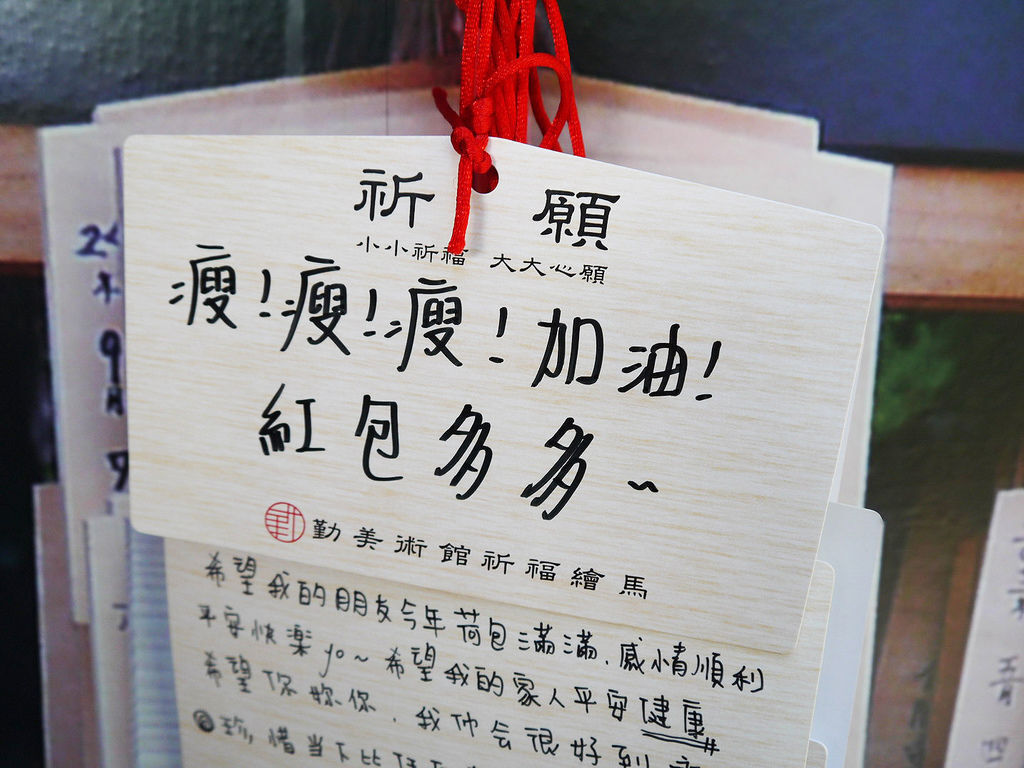 祈願
小小祈福 大大心願
瘦!瘦!瘦!加油!
紅包多多~
勤美術館祈福繪馬
希望我的朋友今年荷包滿滿、感情順利
平安快楽 yo~ 希望我的家人平安健康
希望你
我
会很好
珍惜當下
24
9
月